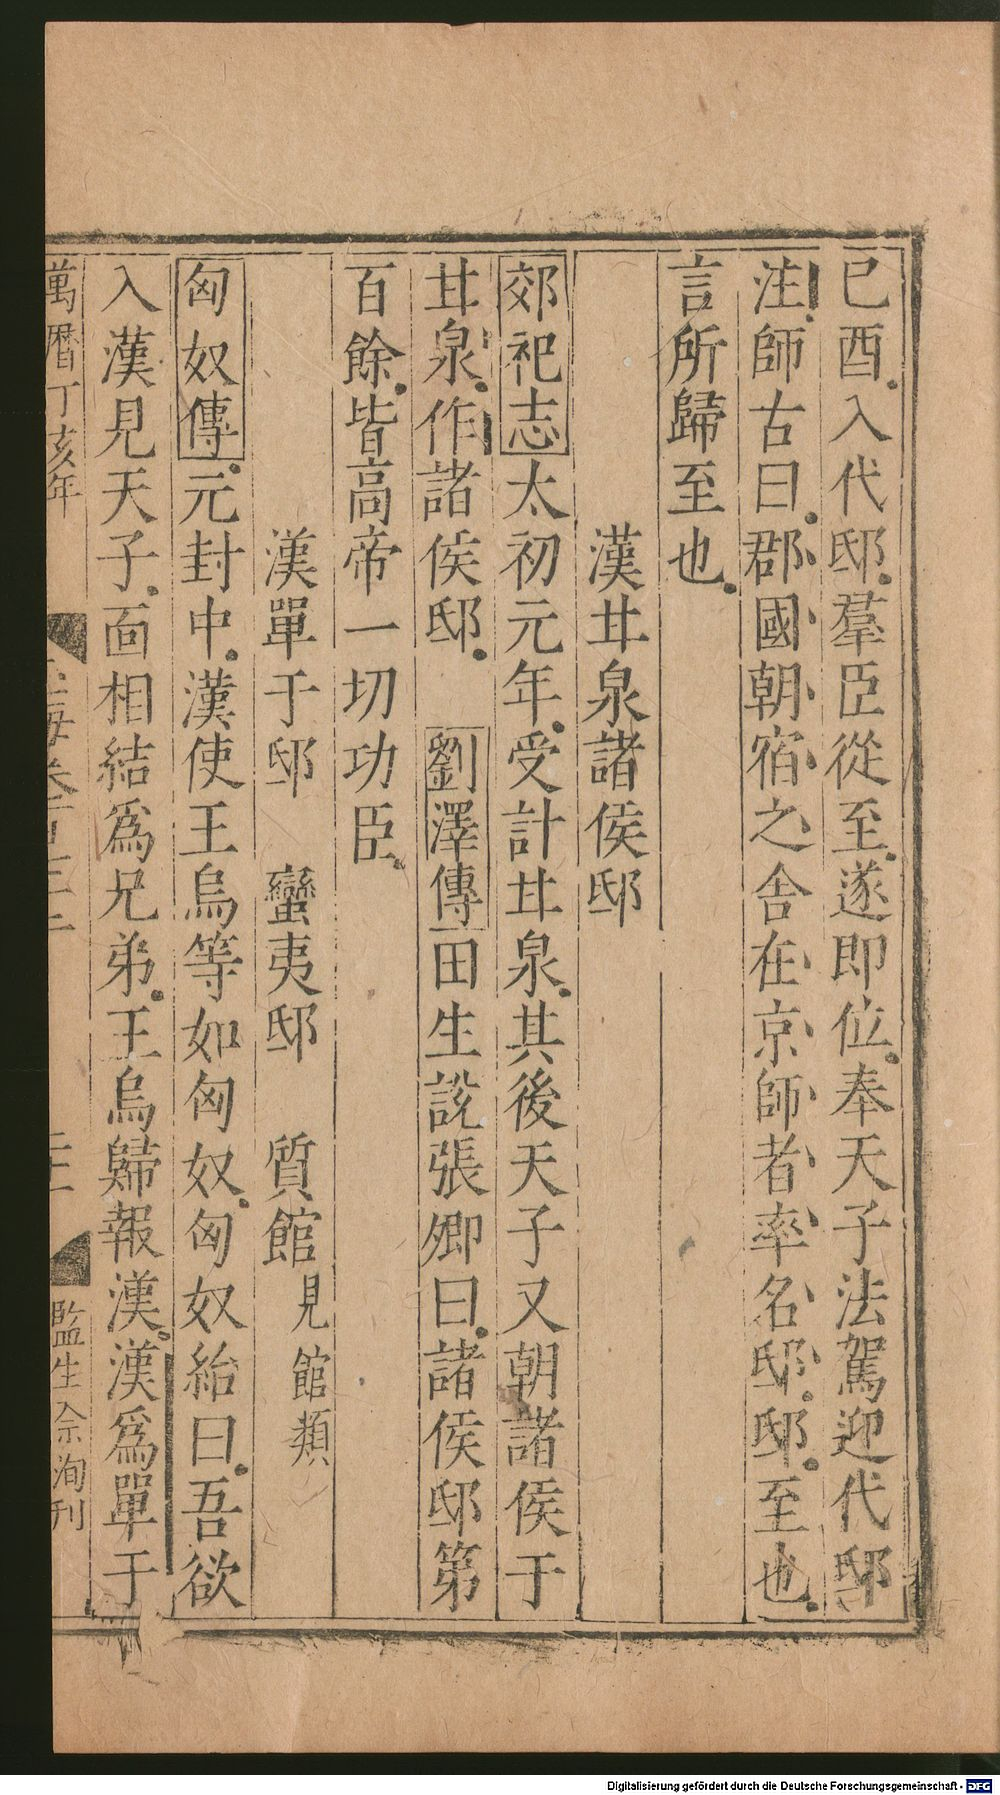 已酉入代邸羣臣從至遂即位奉天子法駕迎代邸
注師古曰郡國朝宿之舍在京師者率名邸邸至也
言所歸至也
漢甘泉諸侯邸
郊祀志太初元年受計甘泉其後天子又朝諸侯于
甘泉作諸侯邸 劉澤傳田生說張卿曰諸侯邸第
百餘皆高帝一切功臣
漢單于邸 蠻夷邸 質館見館類
匈奴傳元封中漢使王烏等如匈奴匈奴紿曰吾欲
入漢見天子面相結為兄弟王烏歸報漢漢為單于
萬曆丁亥年 玉海卷百三二 二十 監生余洵刊
Digitalisierung gefördert durch die Deutsche Forschungsgemeinschaft - DFG